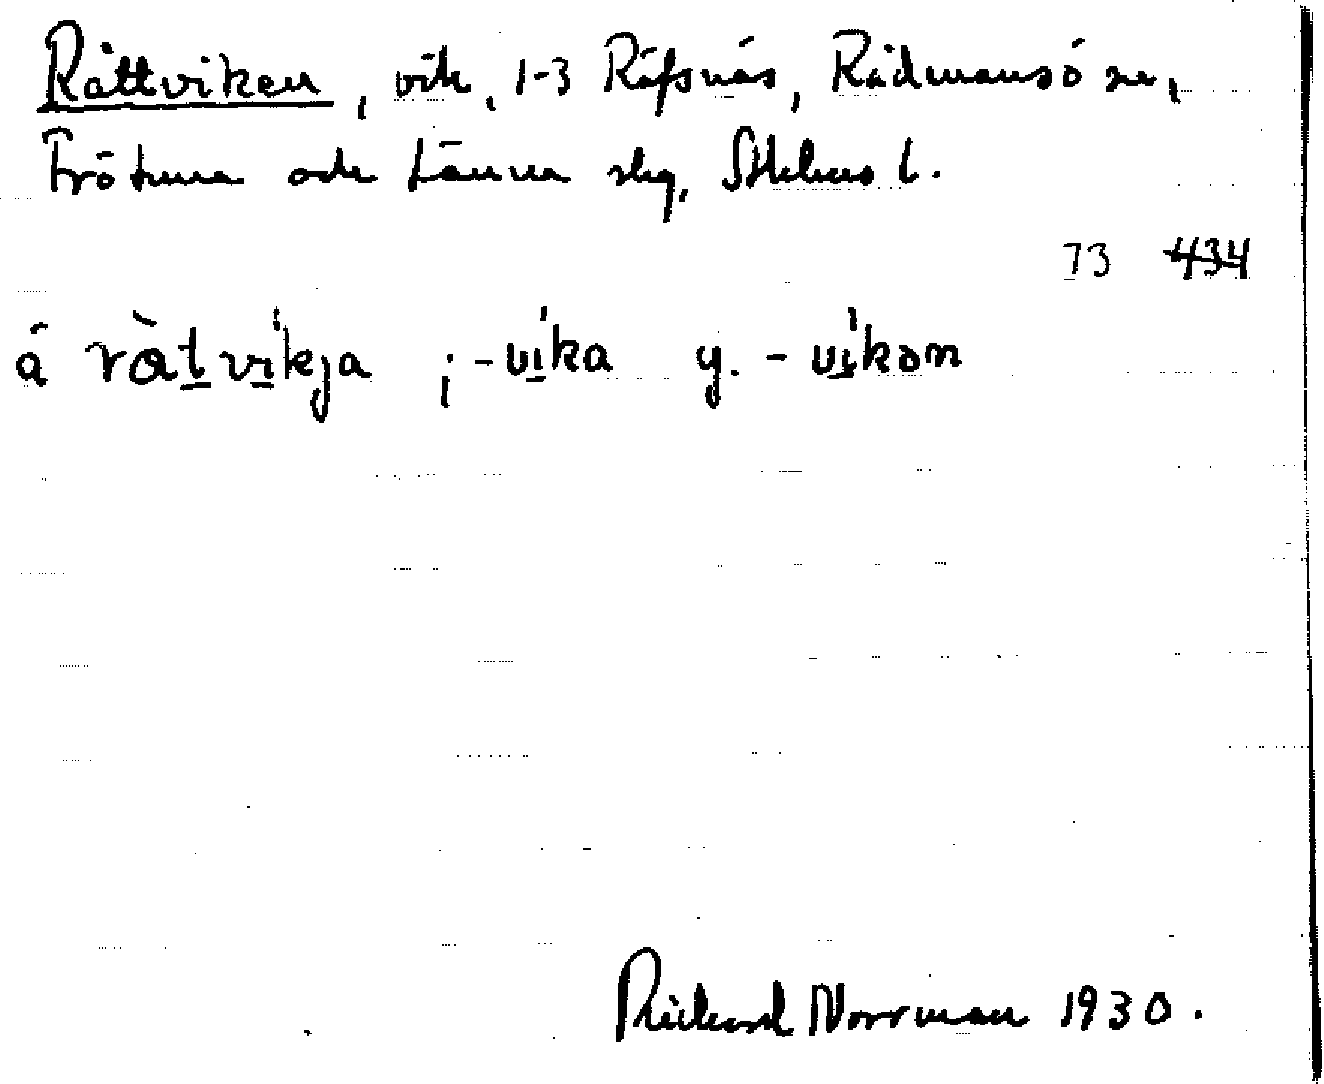 Råttviken, vik, 1-3 Räfsnäs, Rådmansö sn,
Frötuna och Länna slg, Sthlms l.
73 434
å ràtvikja ; -vika y. -vikən
Rickard Norrman 1930.